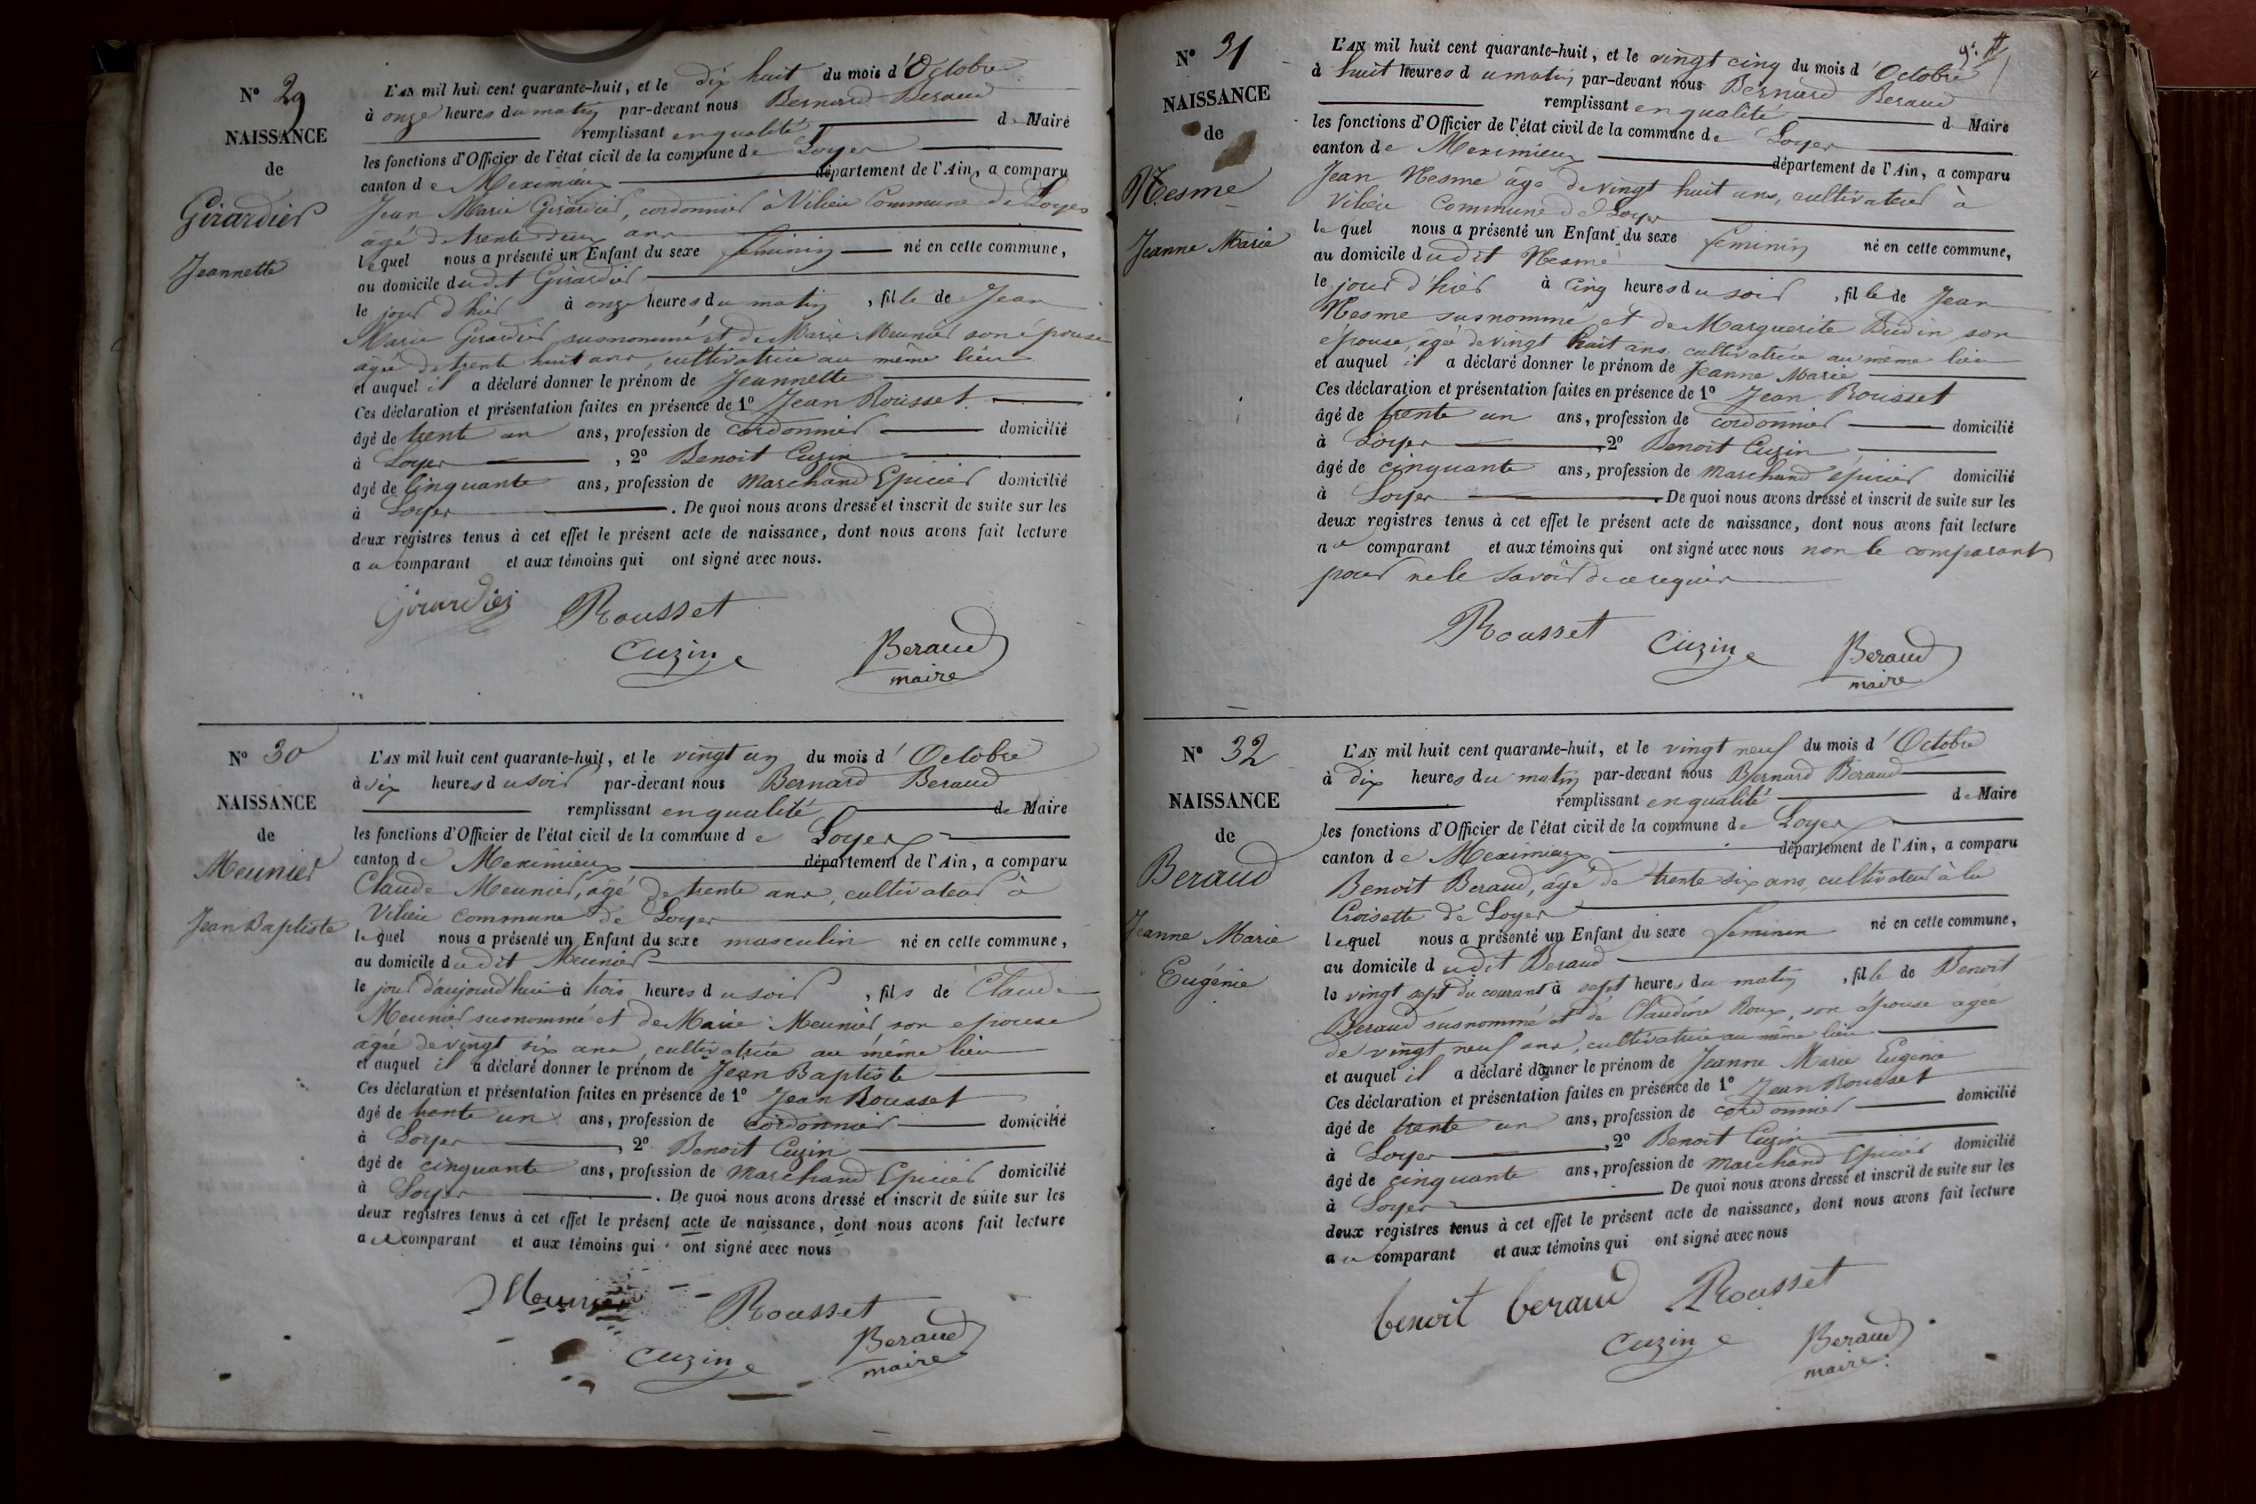 N° 29
NAISSANCE
de
Girardier
Jeannette
L'AN mil huit cent quarante-huit, et le dix huit du mois d'Octobre
à onze heures du matin par-devant nous Bernard Beraud
remplissant en qualité de Maire
les fonctions d'Officier de l'état civil de la commune de Loyes
canton de Meximieux département de l'Ain, a comparu
Jean Marie Girardier, cordonnier à Vilieu Commune de Loyes
âgé de trente deux ans
lequel nous a présenté un Enfant du sexe feminin né en cette commune,
au domicile dudit Girardier
le jour d'hier à onze heures du matin, fille de Jean
Marie Girardier susnommé et de Marie Meunier son épouse
agée de trente huit ans, cultivatrice au même lieu
et auquel il a déclaré donner le prénom de Jeannette
Ces déclaration et présentation faites en présence de 1° Jean Rousset
âgé de trente un ans, profession de cordonnier domicilié
à Loyes, 2° Benoit Cuzin
âgé de cinquante ans, profession de marchand Epicier domicilié
à Loyes. De quoi nous avons dressé et inscrit de suite sur les
deux registres tenus à cet effet le présent acte de naissance, dont nous avons fait lecture
au comparant et aux témoins qui ont signé avec nous.
Girardier Rousset
Cuzin Beraud
maire
N° 30
NAISSANCE
de
Meunier
Jean Baptiste
L'AN mil huit cent quarante-huit, et le vingt un du mois d'Octobre
à six heures du soir par-devant nous Bernard Beraud
remplissant en qualité de Maire
les fonctions d'Officier de l'état civil de la commune de Loyes
canton de Meximieux département de l'Ain, a comparu
Claude Meunier, âgé de trente ans, cultivateur à
Vilieu commune de Loyes
lequel nous a présenté un Enfant du sexe masculin né en cette commune,
au domicile dudit Meunier
le jour d'aujourd'hui à trois heures du soir, fils de Claude
Meunier susnommé et de Marie Meunier son epouse
agée de vingt six ans, cultivatrice au même lieu
et auquel il a déclaré donner le prénom de Jean Baptiste
Ces déclaration et présentation faites en présence de 1° Jean Rousset
âgé de trente un ans, profession de cordonnier domicilié
à Loyes, 2° Benoit Cuzin
âgé de cinquante ans, profession de marchand Epicier domicilié
à Loyes. De quoi nous avons dressé et inscrit de suite sur les
deux registres tenus à cet effet le présent acte de naissance, dont nous avons fait lecture
au comparant et aux témoins qui ont signé avec nous
Meunier Rousset
Cuzin Beraud
maire
N° 31
NAISSANCE
de
Nesme
Jeanne Marie
L'AN mil huit cent quarante-huit, et le vingt cinq du mois d'Octobre
à huit heures du matin par-devant nous Bernard Beraud
remplissant en qualité de Maire
les fonctions d'Officier de l'état civil de la commune de Loyes
canton de Meximieux département de l'Ain, a comparu
Jean Nesme âgé de vingt huit ans, cultivateur à
Vilieu Commune de Loyes
lequel nous a présenté un Enfant du sexe feminin né en cette commune,
au domicile dudit Nesme
le jour d'hier à cinq heures du soir, fille de Jean
Nesme susnommé et de Marguerite Budin son
épouse, âgée de vingt huit ans, cultivatrice au même lieu
et auquel il a déclaré donner le prénom de Jeanne Marie
Ces déclaration et présentation faites en présence de 1° Jean Rousset
âgé de trente un ans, profession de cordonnier domicilié
à Loyes 2° Benoit Cuzin
âgé de cinquante ans, profession de marchand épicier domicilié
à Loyes. De quoi nous avons dressé et inscrit de suite sur les
deux registres tenus à cet effet le présent acte de naissance, dont nous avons fait lecture
au comparant et aux témoins qui ont signé avec nous non le comparant
pour ne le savoir de ce requis
Rousset Cuzin Beraud
maire
N° 32
NAISSANCE
de
Beraud
Jeanne Marie
Eugénie
L'AN mil huit cent quarante-huit, et le vingt neuf du mois d'Octobre
à dix heures du matin par-devant nous Bernard Beraud
remplissant en qualité de Maire
les fonctions d'Officier de l'état civil de la commune de Loyes
canton de Meximieux département de l'Ain, a comparu
Benoit Beraud, âgé de trente six ans, cultivateur à la
Croisette de Loyes
lequel nous a présenté un Enfant du sexe feminin né en cette commune,
au domicile dudit Beraud
le vingt sept du courant à sept heures du matin, fille de Benoit
Beraud susnommé et de Claudine Roux, son épouse agée
de vingt neuf ans, cultivatrice au même lieu
et auquel il a déclaré donner le prénom de Jeanne Marie Eugénie
Ces déclaration et présentation faites en présence de 1° Jean Rousset
âgé de trente un ans, profession de cordonnier domicilié
à Loyes, 2° Benoit Cuzin
âgé de cinquante ans, profession de marchand Epicier domicilié
à Loyes De quoi nous avons dressé et inscrit de suite sur les
deux registres tenus à cet effet le présent acte de naissance, dont nous avons fait lecture
au comparant et aux témoins qui ont signé avec nous
benoit beraud Rousset
Cuzin Beraud
maire